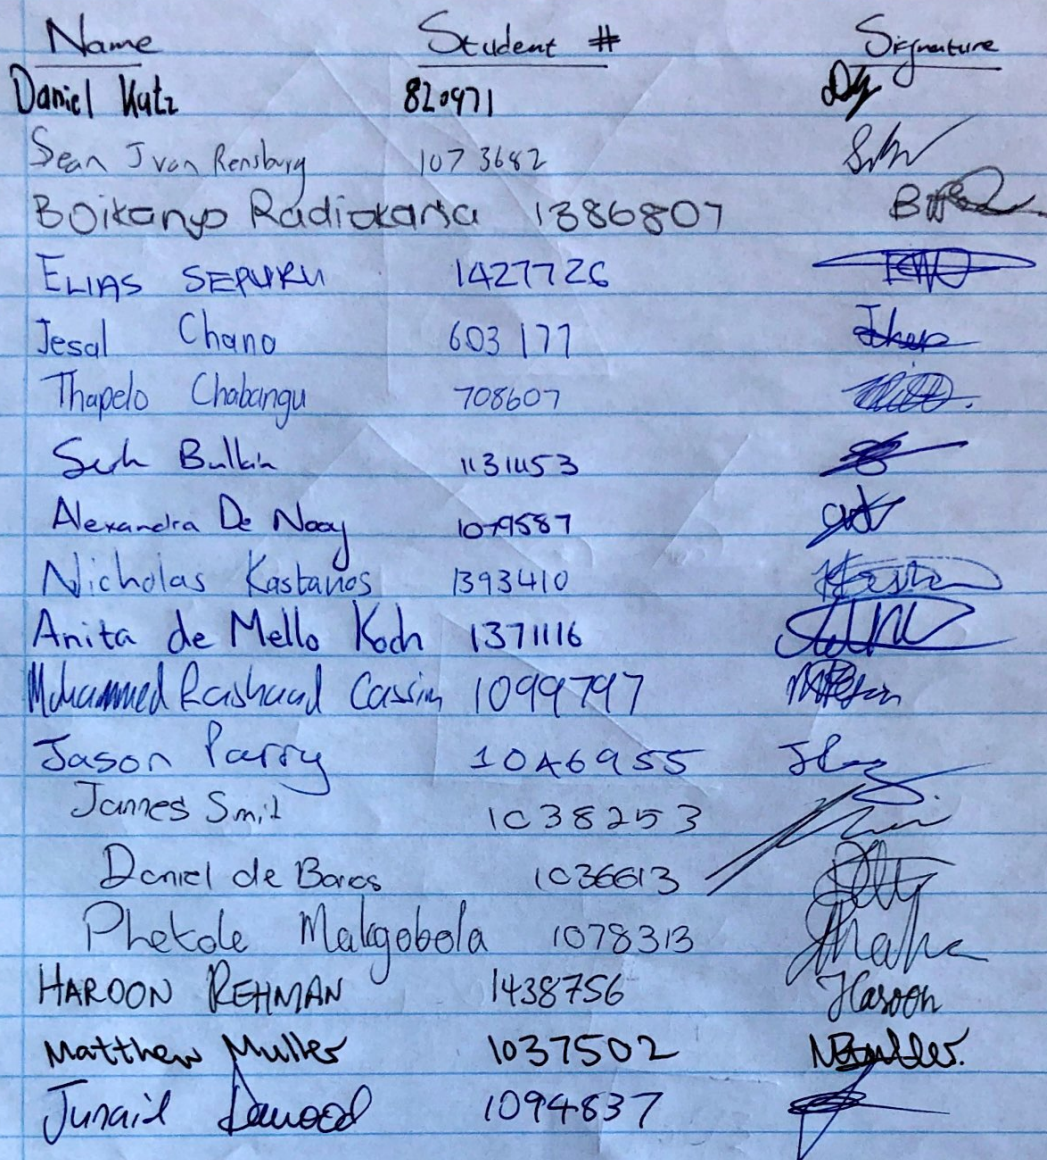 Name Student # Signature
Daniel Katz 820971
Sean J van Rensburg 1073682
Boikanyo Radiokana 1386807
ELIAS SEPURU 1427726
Jesal Chana 603177
Thapelo Chabangu 708607
Bulkin
Alexandra De Nooy 1079587
Nicholas Kastanos 1393410
Anita de Mello Koch 1371116
Mohammed Rashaad Cassim 1099797
Jason Parry 1046955
Jannes Smit 1038253
Daniel de Barros 1036613
Phetole Makgobola 1078313
HAROON REHMAN 1438756 Haroon
Matthew Muller 1037502
Junaid Dawood 1094837